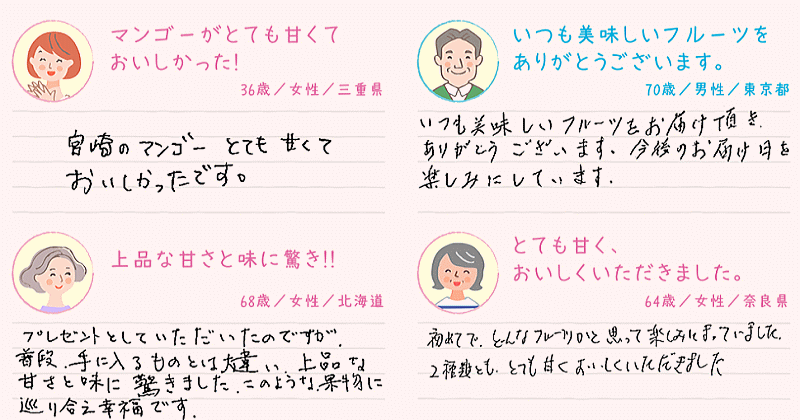 マンゴーがとても甘くて
おいしかった!
36歳／女性／三重県
宮崎のマンゴー とても甘くて
おいしかったです。
いつも美味しいフルーツを
ありがとうございます。
70歳／男性／東京都
いつも美味しいフルーツをお届け頂き、
ありがとうございます、今後のお届け日を
楽しみにしています.
上品な甘さと味に驚き!!
68歳／女性／北海道
プレゼントとしていただいたのですが、
普段、手に入るものとは違い、上品な
甘さと味に驚きました、このような果物に
巡り合え幸福です.
とても甘く、
おいしくいただきました。
64歳／女性／奈良県
初めてで、どんなフルーツかと思って楽しみにまっていました.
2種類とも、とても甘くおいしくいただきました